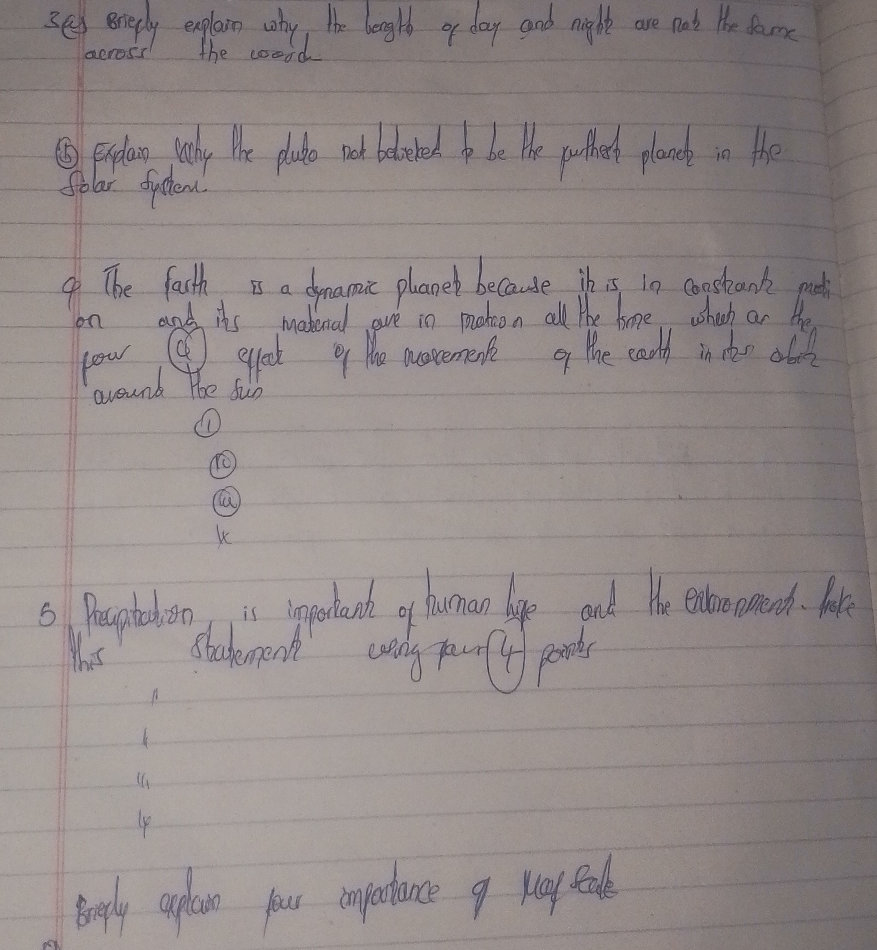 3(a) Briefly explain why the length of day and night are not the same
across the world
(b) Explain why the pluto not believed to be the furthest planet in the
Solar System.
4 The Earth is a dynamic planet because it is in constant moti
on and its material are in motion all the time which are the
four (4) effect of the movement of the earth in its orbit
around the sun
(i)
(ii)
(iii)
iv
5 Precipitation is important of human life and the environment.
this statement using four (4) points
i
ii
iii
iv
Briefly explain four importance of Map Scale